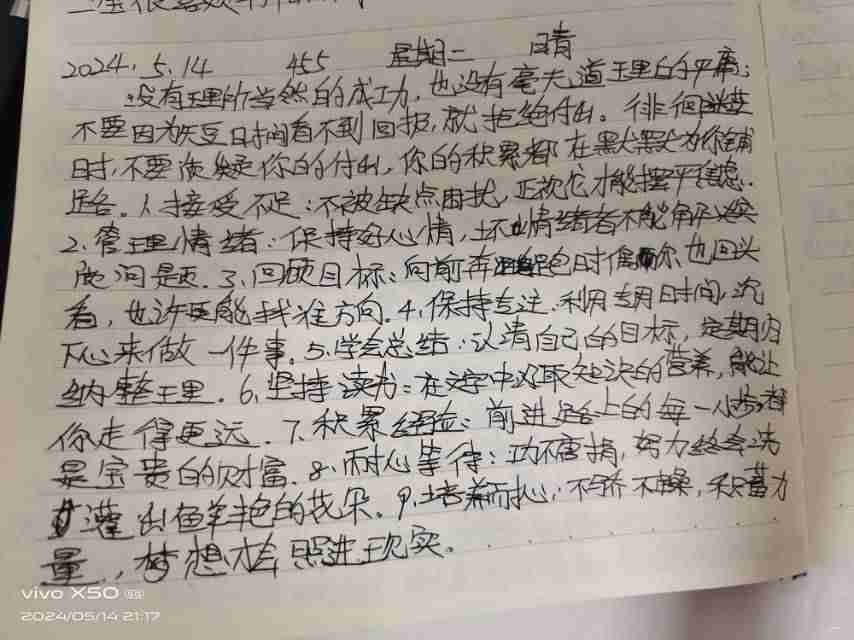 2024.5.14 455 星期二 晴
没有理所当然的成功,也没有毫无道理的平庸;
不要因为短时间看不到回报,就拒绝付出。徘徊迷茫
时,不要质疑你的付出,你的积累都在默默为你铺
路。1.接受不足:不被缺点困扰,正视它才能摆平焦虑.
2.管理情绪:保持好心情,坏情绪者不能解决实
质问题.3.回顾目标:向前奔跑时偶尔也回头
看,也许更能找准方向.4.保持专注.利用专用时间,沉
下心来做一件事.5.学会总结:认清自己的目标,定期归
纳整理.6.坚持读书:在文字中汲取知识的营养,能让
你走得更远.7.积累经验:前进路上的每一小步,都
是宝贵的财富.8.耐心等待:功不唐捐,努力终会浇
灌出鲜艳的花朵.9.培养耐心:不骄不躁,积蓄力
量,梦想才会照进现实。
vivo X50 5G
2024/05/14 21:17